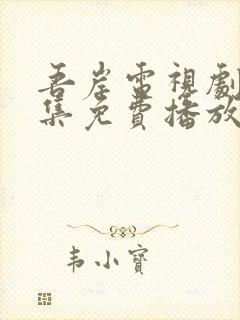 吾岸電視劇
集免費播放
韦小寶